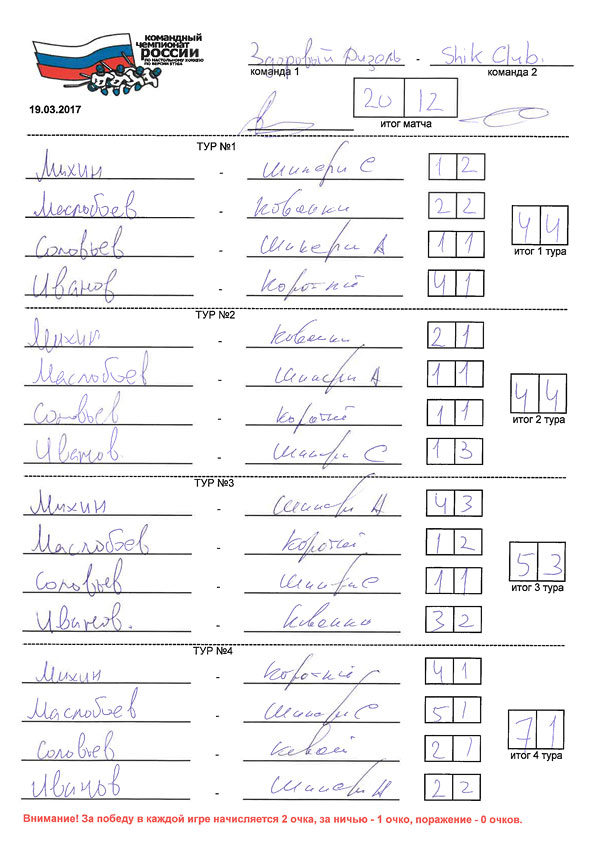 КОМАНДНЫЙ
ЧЕМПИОНАТ
РОССИИ
ПО НАСТОЛЬНОМУ ХОККЕЮ
ПО ВЕРСИИ STIGA
Здоровый Дизель - Shik Club.
команда 1 команда 2
19.03.2017
20 12
итог матча
ТУР №1
Михин - Шипери С 1 2
Маслобоев - Ковенки 2 2
Соловьев - Шипери А 1 1
Иванов - Короткий 4 1
4 4
итог 1 тура
ТУР №2
Михин - Ковенки 2 1
Маслобоев - Шипери А 1 1
Соловьев - Короткий 1 1
Иванов. - Шипери С 1 3
4 4
итог 2 тура
ТУР №3
Михин - Шипери А 4 3
Маслобоев - Короткий 1 2
Соловьев - Шипери С 1 1
Иванов. - 3 2
5 3
итог 3 тура
ТУР №4
Михин - Короткий 4 1
Маслобоев - Шипери С 5 1
Соловьев - 2 1
Иванов - Шипери А 2 2
7 1
итог 4 тура
Внимание! За победу в каждой игре начисляется 2 очка, за ничью - 1 очко, поражение - 0 очков.